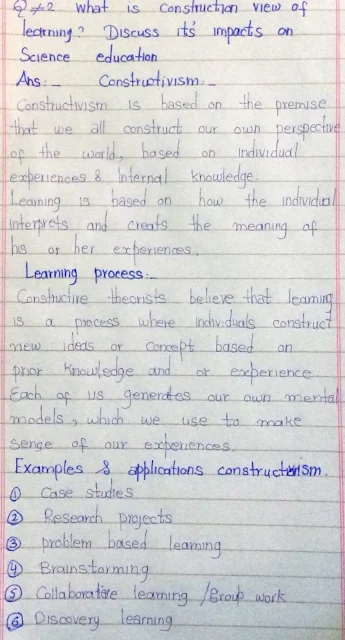 Q#2 What is construction view of
learning? Discuss its impacts on
Science education
Ans:- Constructivism:-
Constructivism is based on the premise
that we all construct our own perspective
of the world, based on individual
experiences & internal knowledge.
Learning is based on how the individual
interprets and creats the meaning of
his or her experiences.
Learning process:-
Constructive theorists believe that learning
is a process where individuals construct
new ideas or concept based on
prior knowledge and or experience.
Each of us generates our own mental
models, which we use to make
sense of our experiences.
Examples & applications constructivism.
① Case studies
② Research projects
③ problem based learning
④ Brainstorming
⑤ Collaborative learning /Group work
⑥ Discovery learning